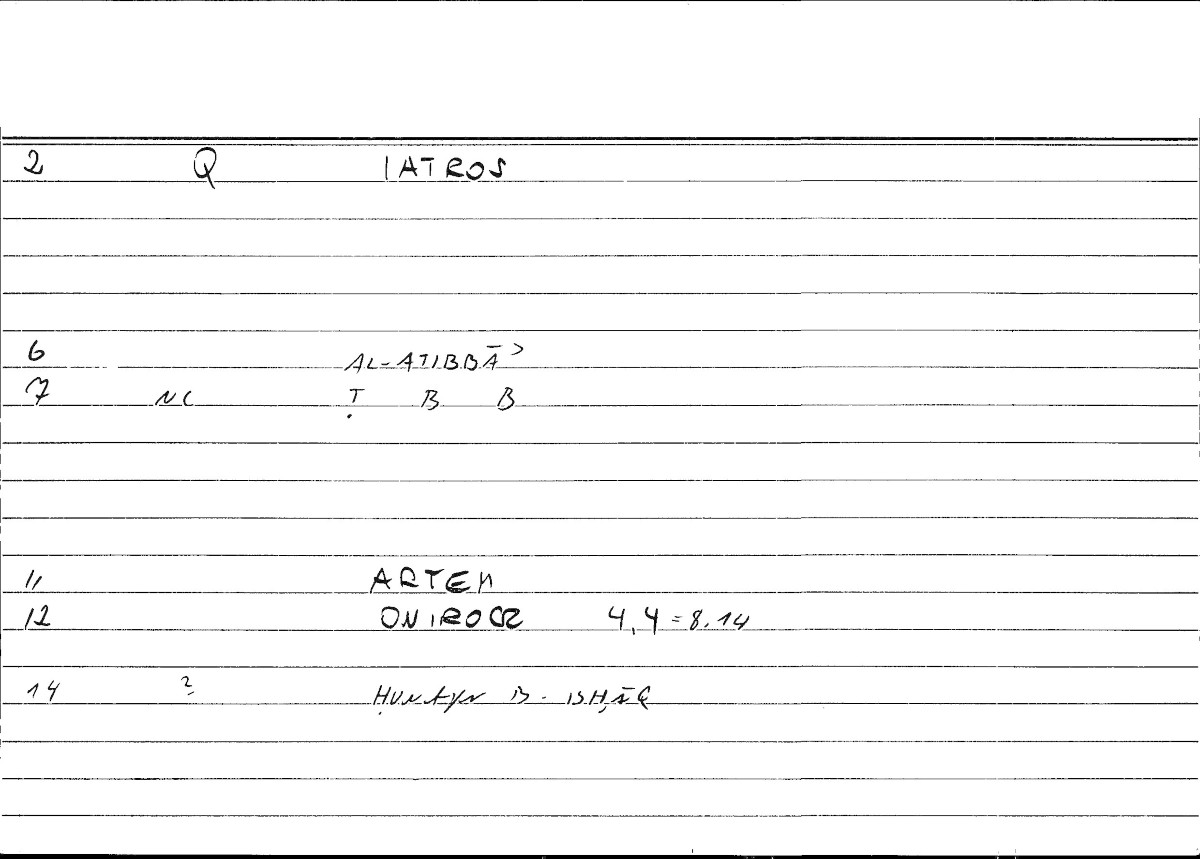 2 Q IATROS
6 AL-ATIBBĀʾ
7 NC Ṭ B B
11 ARTEM
12 ONIROCR 4,4 = 8.14
14 ? ḤUNAYN B. ISḤĀQ